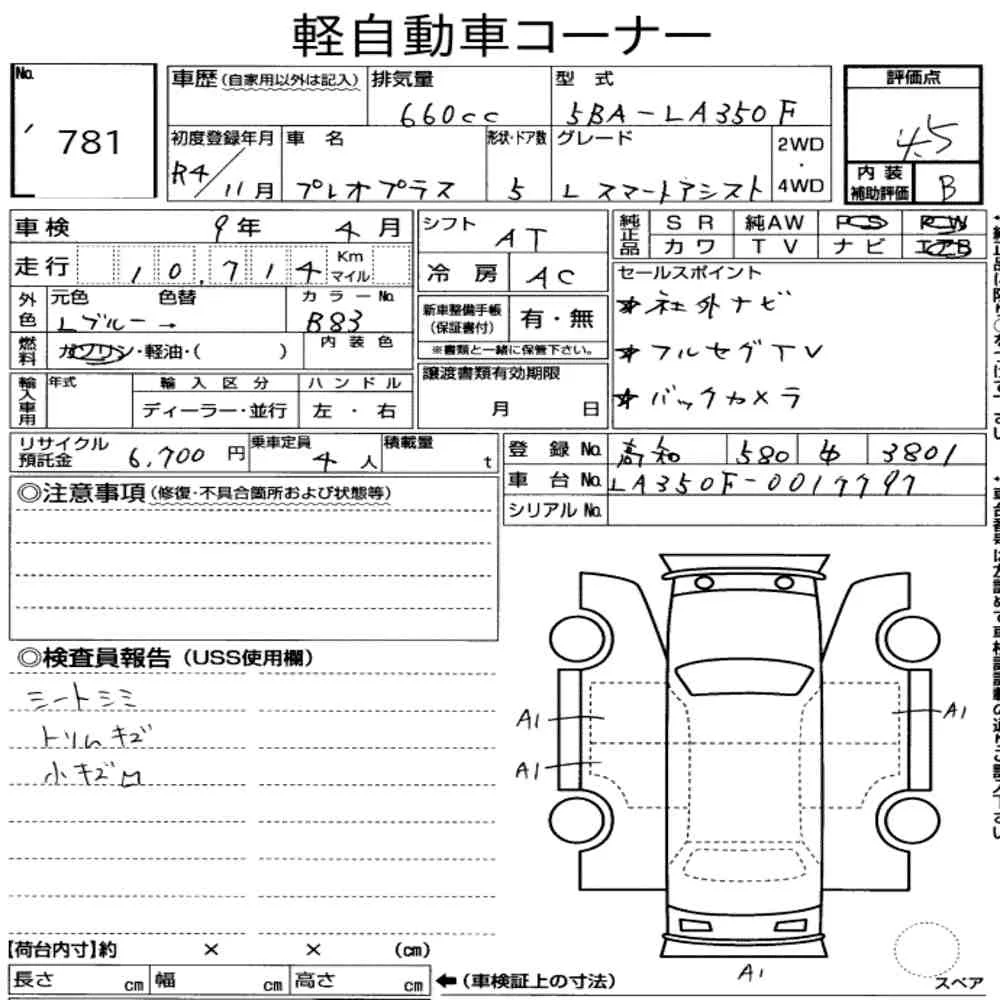 軽自動車コーナー
No. 781
車歴(自家用以外は記入) 排気量 660cc 型式 5BA-LA350F
評価点 4.5
初度登録年月 R4/11月 車名 プレオプラス 形状・ドア数 5 グレード L スマートアシスト 2WD・4WD
内装補助評価 B
車検 9年 4月
シフト AT
純正品 SR 純AW PS PW
カワ TV ナビ エアB
走行 10,714 Km マイル
冷房 AC
セールスポイント
★社外ナビ
★フルセグTV
★バックカメラ
外色 元色 Lブルー→ 色替 カラーNo. B83
新車整備手帳(保証書付) 有・無
※書類と一緒に保管下さい。
燃料 ガソリン・軽油・( ) 内装色
輸入車用 年式 輸入区分 ハンドル
ディーラー・並行 左・右
譲渡書類有効期限
月 日
リサイクル預託金 6,700円 乗車定員 4人 積載量 t
登録No. 高知 580 4 3801
車台No. LA350F-0017797
シリアルNo.
◎注意事項(修復・不具合箇所および状態等)
◎検査員報告(USS使用欄)
シートシミ
トリムキズ
小キズ凹
A1
A1
A1
A1
スペア
【荷台内寸】約 × × (cm)
長さ cm 幅 cm 高さ cm ←(車検証上の寸法)